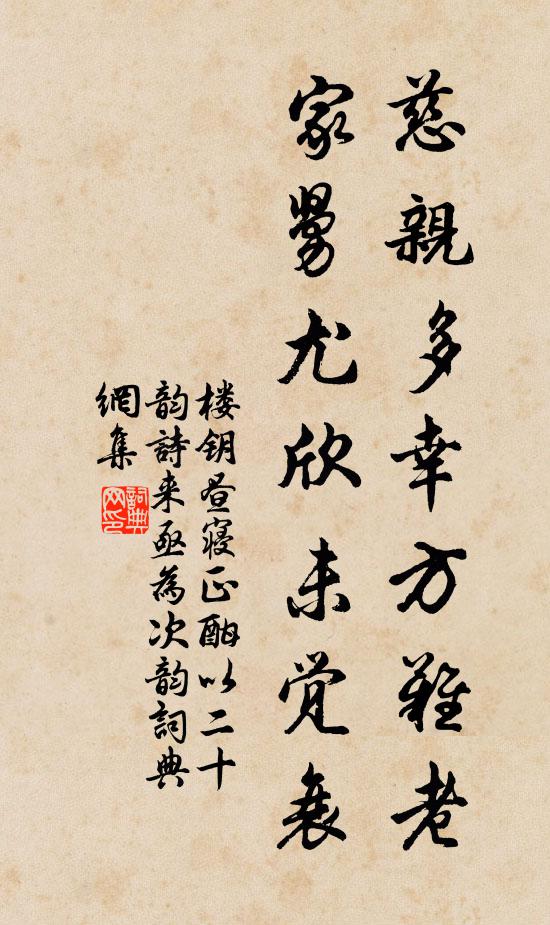 慈親多幸方難老
家舅尤欣未觉衰
楼钥昼寝正酣以二十
韵詩来亟為次韵詞典
網集
詞典
网印